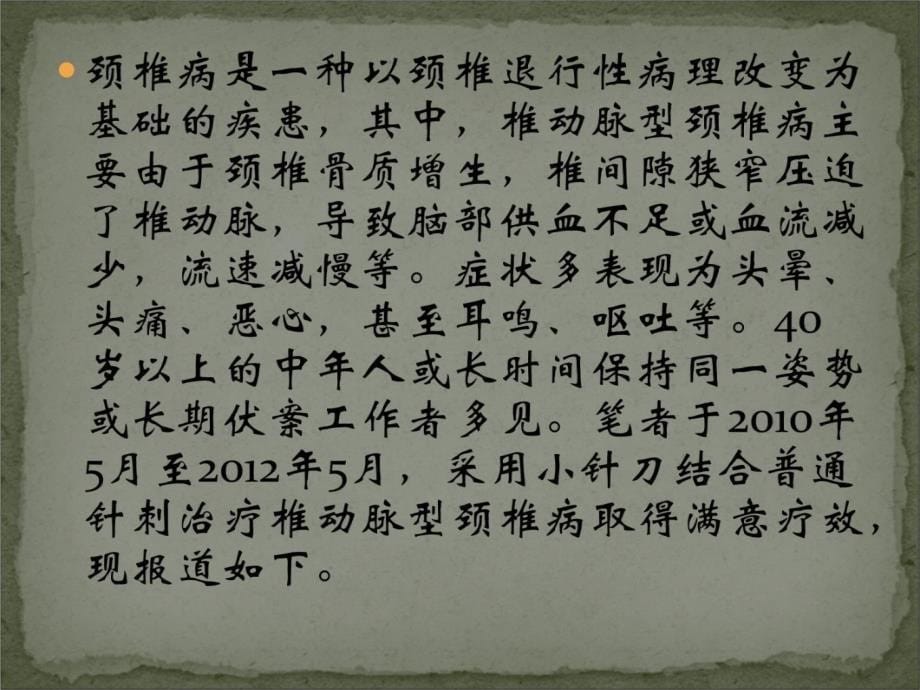 颈椎病是一种以颈椎退行性病理改变为
基础的疾患，其中，椎动脉型颈椎病主
要由于颈椎骨质增生，椎间隙狭窄压迫
了椎动脉，导致脑部供血不足或血流减
少，流速减慢等。症状多表现为头晕、
头痛、恶心，甚至耳鸣、呕吐等。40
岁以上的中年人或长时间保持同一姿势
或长期伏案工作者多见。笔者于2010年
5月至2012年5月，采用小针刀结合普通
针刺治疗椎动脉型颈椎病取得满意疗效，
现报道如下。